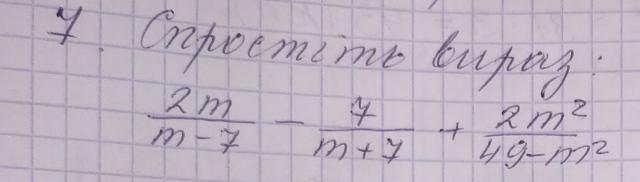 7. Спростіть вираз:
2m/(m-7) - 7/(m+7) + 2m²/(49-m²)